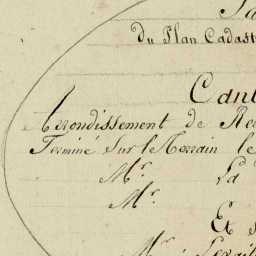 du Plan Cadast
Cant
Arrondissement de Re
Terminé sur le Terrain le
Mr. La
Mr.
Et s
Mr.